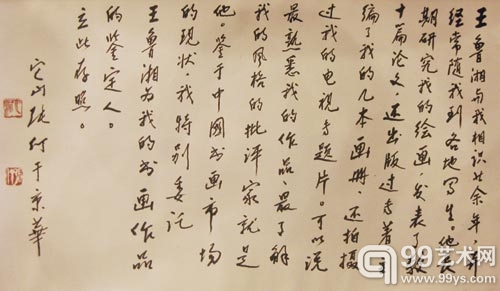 王鲁湘与我相识廿余年，并
经常随我到各地写生。他长
期研究我的绘画，发表了数
十篇论文，还出版过专著，主
编了我的几本画册，还拍摄
过我的电视专题片。可以说
最熟悉我的作品、最了解
我的风格的批评家就是
他。鉴于中国书画市场
的现状，我特别委托
王鲁湘为我的书画作品
的鉴定人。
立此存照。
它山张仃于京华
99艺术网
www.99ys.com